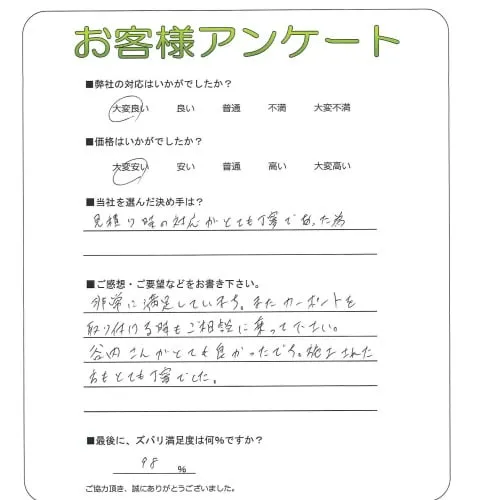 お客様アンケート
■弊社の対応はいかがでしたか？
大変良い 良い 普通 不満 大変不満
■価格はいかがでしたか？
大変安い 安い 普通 高い 大変高い
■当社を選んだ決め手は？
見積り時の対応がとても丁寧であった為
■ご感想・ご要望などをお書き下さい。
非常に満足しています。またカーポートを
取り付ける時もご相談に乗って下さい。
谷内さんがとても良かったです。施工された
方もとても丁寧でした。
■最後に、ズバリ満足度は何％ですか？
98 ％
ご協力頂き、誠にありがとうございました。